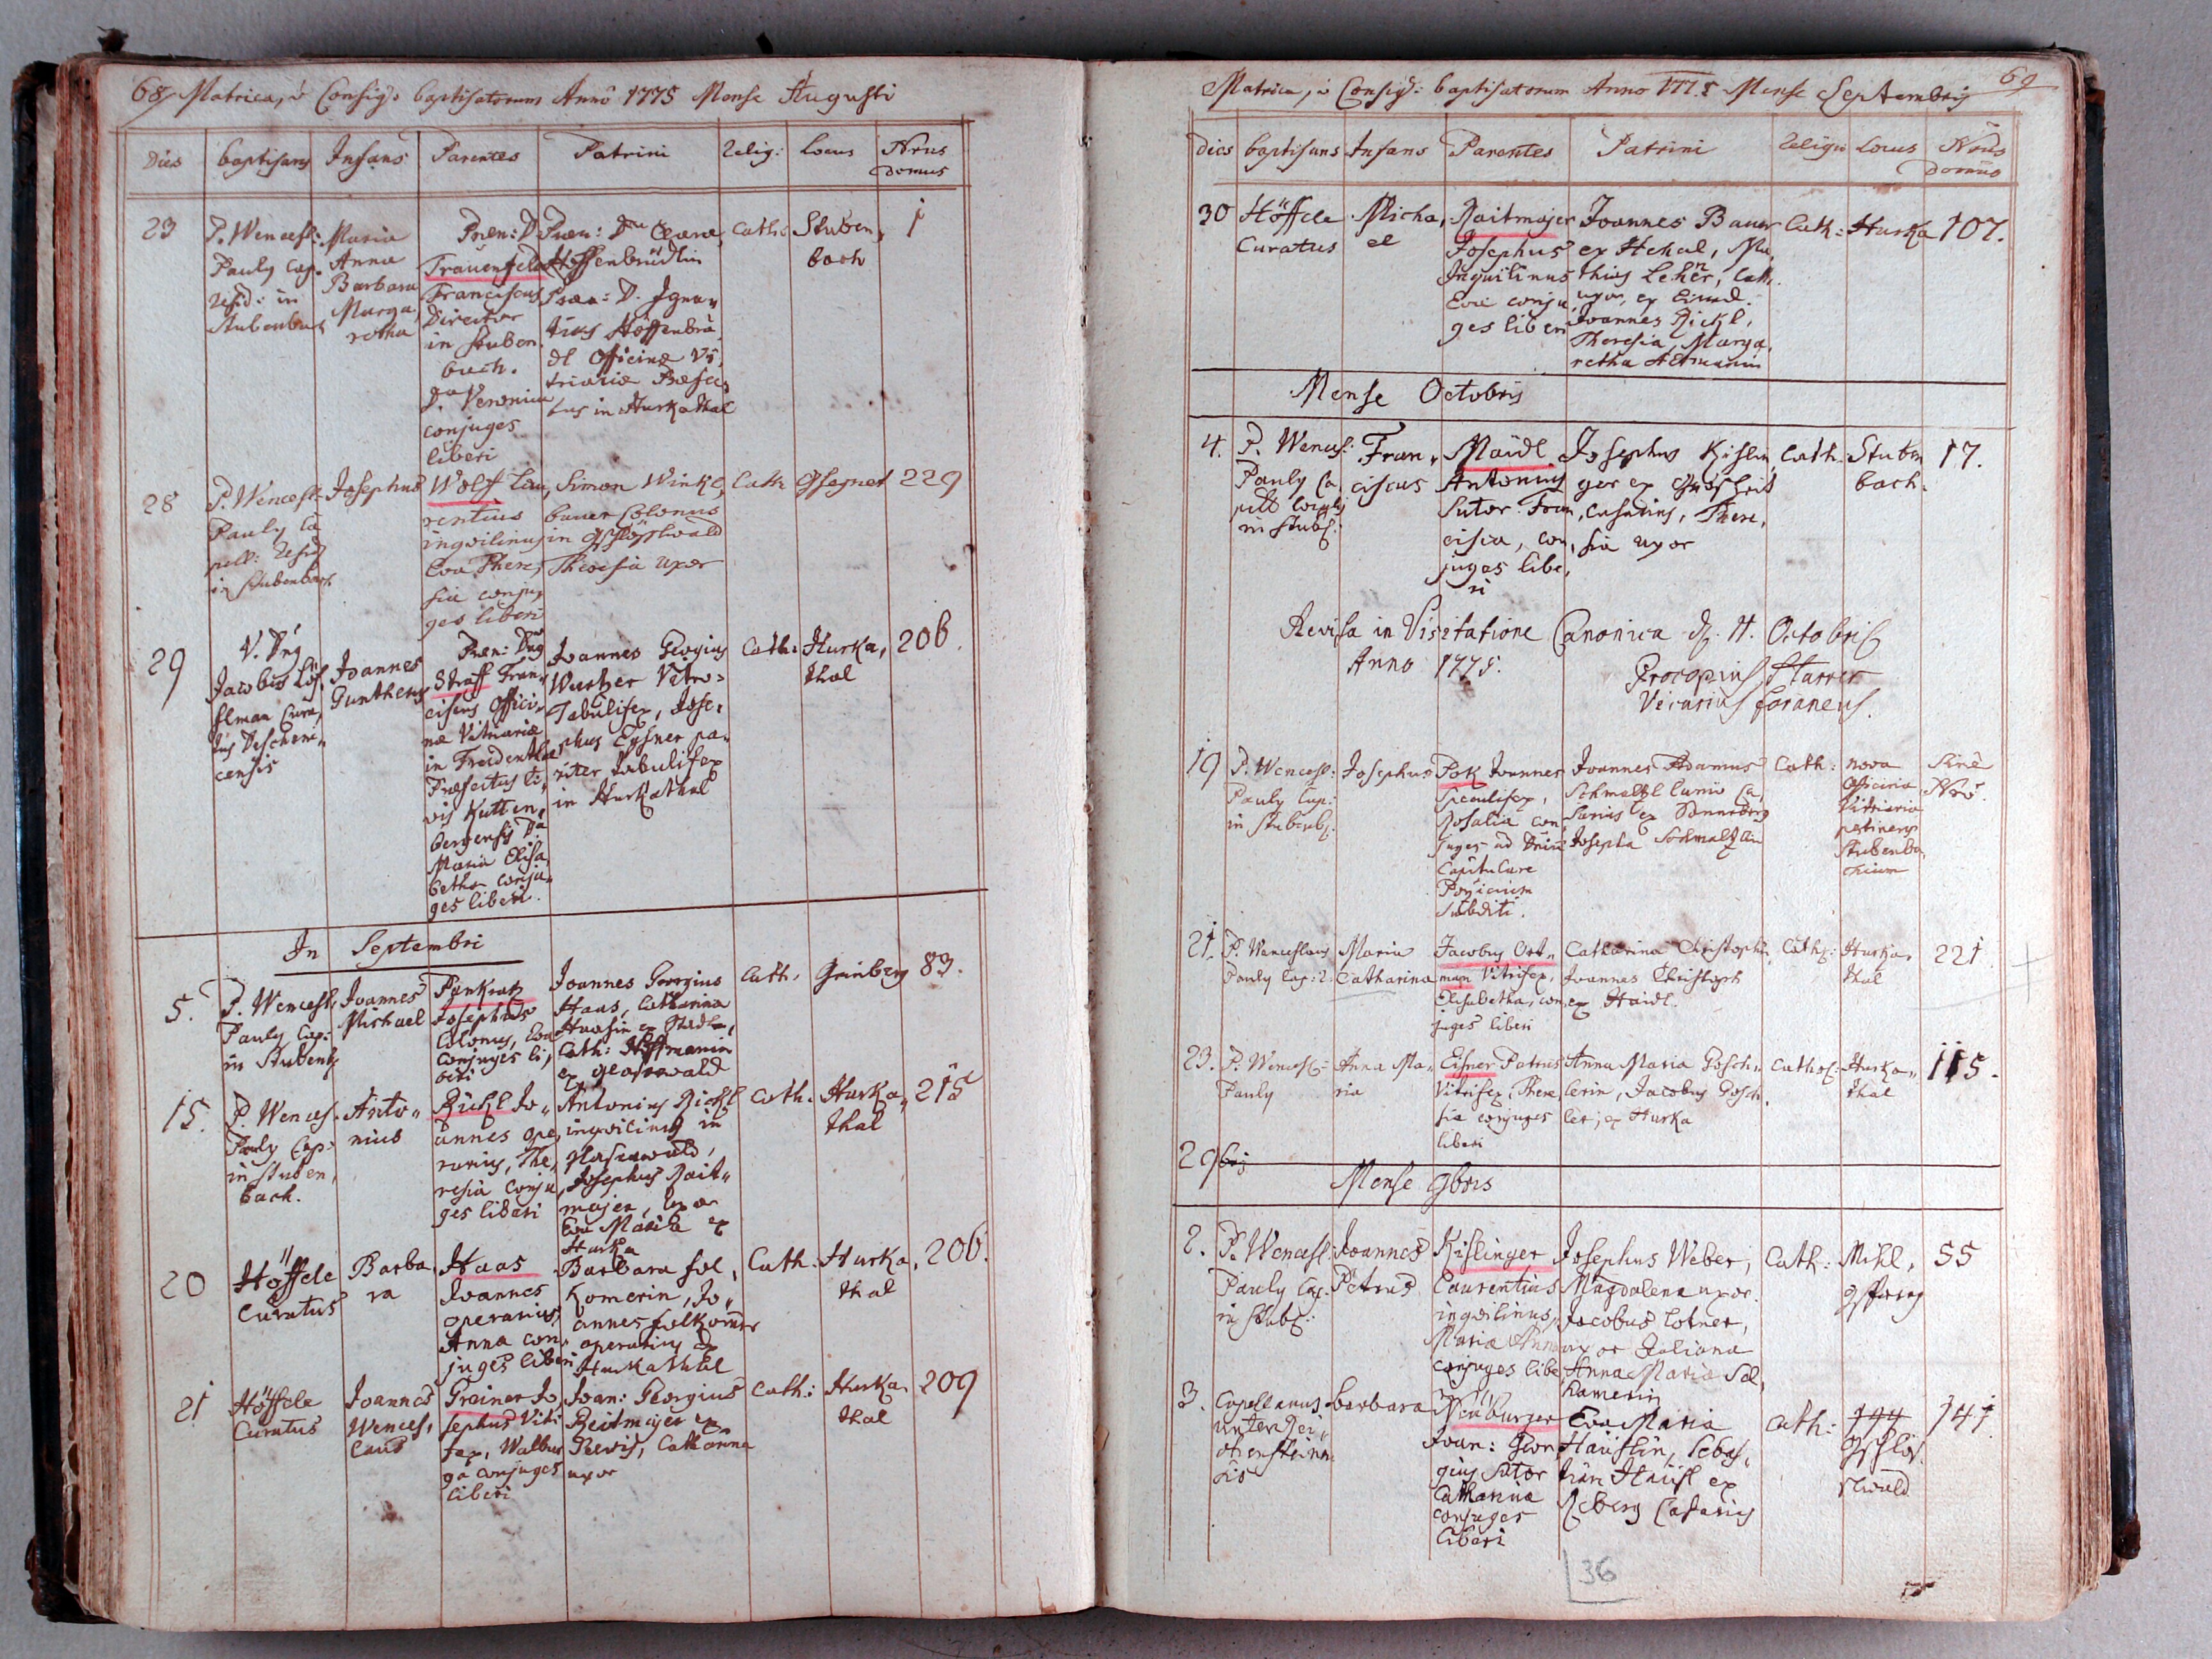 68 Matrica, ô Consig: baptisatorum Annô 1775 Mense Augusti
Dies baptisans Infans Parentes Patrini Relig: Locus Nrus Domus
23
P. Wencesl:
Pauly Cap.
resid: in
Stubenbach
Maria
Anna
Barbara
Marga,
retha
Præn: D
Frauenfeld
Franciscus
Director
in Stuben,
bach.
Da Veronica
conjuges
liberi
Præn: Dna Clara
Höffenbrüdlin
Præn: D. Igna,,
tius Höffenbrü,
dl Officinæ Vi,
triariæ Præfec,
tus in Hurkathal
Cath:
Stuben,
bach
1
28
P. Wencesl:
Pauly Ca,
pell: resid
in Stubenbach
Josephus
Wolf Lau,
rentius
inqvilinus
Eva There,
sia conju,
ges liberi
Simon Winkl,
bauer Colonus
in Gschlösslwald
Theresia uxor
Cath:
Gsegnet
229
29
V. Dns
Jacobus Löf,
flman Cura,
tus Descheni,,
censis
Joannes
Guntherus
Præn: Dnus
Straff Fran,
ciscus Offici,
næ Vitriariæ
in Freidenthal
Præfectus Ci,
vis Kutten,
bergensis Da
Maria Elisa,
betha conju,,
ges liberi.
Joannes Georgius
Wurtzer Vitro=
Tabulifex, Jose,
phus Eysner pa,,
riter Tabulifex
in Hurkathal
Cath:
Hurka,
thal
206.
In Septembri
5.
P. Wencesl:
Pauly Cap:
in Stubenb.
Joannes
Michael
Pankratz
Josephus
Colonus, Eva
conjuges li,
beri
Joannes Georgius
Haas, Catharina
Haasin ex Stadln,
Cath: Hoffmanin
ex Glaserwald
Cath:
Grünberg
83.
15.
P. Wences.
Pauly Cap:
in Stuben,
bach.
Anto,,
nius
Rückl Jo,,
annes ope,
rarius, The,
resia conju,
ges liberi
Antonius Rickl
inqvilinus in
Glaserwald,
Josephus Rait,,
majer, uxor
Eva Maria ex
Hurka
Cath.
Hurka,
thal
215
20
Höffele
Curatus
Barba,
ra
Haas
Joannes
operarius,
Anna con,
juges liberi
Barbara fol,
Komerin, Jo,,
annes folkomer
operarius ex
Hurkathal
Cath:
Hurka,
thal
206.
21
Höffele
Curatus
Joannes
Wences,
laus
Greiner Jo,
sephus Vitri
fex, Walbur
ga conjuges
liberi
Joan: Georgius
Reidmajer ex
Rewis, Catharina
uxor
Cath:
Hurka,
thal
209
69
Matrica, ô Consig: baptisatorum Anno 1775 Mense Septembris
Dies baptisans Infans Parentes Patrini Religio Locus Nrus Domus
30
Höffele
Curatus
Micha,
el
Raitmajer
Josephus
Inquilinus
Eva conju,
ges liberi
Joannes Bauer
ex Hekal, Ma,
thias Lehner, Cath.
uxor, ex Eisend.
Joannes Rickl,
Theresia, Marga,
retha Altmanin
Cath:
Hurka
107.
Mense Octobris
4.
P. Wences:
Pauly Ca,
pell localis
in Stub:
Fran,
ciscus
Maidl
Antonius
Sutor. Fran,
cisca, con,
juges libe,
ri
Josephus Kislin,
ger ex
Casarius, There,
sia uxor
Cath.
Stuben
bach.
17.
Revisa in Visitatione Canonica d. 11. Octobris
Anno 1775.
Procopius Starrer
Vicarius foraneus.
19
P. Wencesl:
Pauly Cap:
in Stubenb.
Josephus
Pok Joannes
Speculifex,
Rosalia con,
juges ad Dniu
Capitulare
subditi.
Joannes Adamus
Schmaltzl
ex Sonneberg
Josepha Schmaltzlin
Cath:
nova
Officina
Vitriaria
pertinens
Stubenba,
chium
Sine
Nrô.
21.
P. Wenceslaus
Pauly Cap: l.
Maria
Catharina
Jacobus Ort,,
man Vitrifex,
Elisabetha, con,
juges liberi
Catharina Christophin
Joannes Christoph
ex Haidl.
Cath:
Hurka,
thal
221
23.
P. Wencesl:
Pauly
Anna Ma,,
ria
Eisner Petrus
Vitrifex, There
sia conjuges
liberi
Anna Maria Gosch,,
lerin, Jacobus Gosch,
ler, ex Hurka
Cathol:
Hurka,,
thal
115.
29bris
Mense 9bris
2.
P. Wencesl:
Pauly Cap.
in Stub:
Joannes
Petrus
Kislinger
Laurentius
inqvilinus,
Maria Anna
conjuges libe
Josephus Weber,
Magdalena uxor.
Jacobus Lotner,
uxor Juliana
Anna Maria Sel,
hamerin
Cath:
Mihl,
gspreng
55
3.
Capellanus
Unterrei,,
chensteinen
sis
barbara
Neuburger
Joan: Geor
gius Sutor
Catharina
conjuges
liberi
Eva Maria
Haüslin, Sebas,,
tian Haüsl ex
Rehberg Casarius
Cath:
194
Gschlös.
slwald
141
36